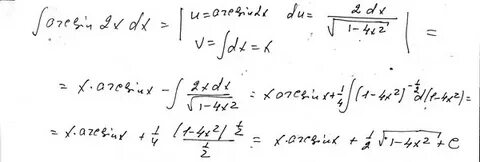 ∫arcsin 2x dx = | u = arcsin2x   du = 2dx/√(1-4x²)   v = ∫dx = x | =
= x·arcsinx - ∫ 2xdx/√(1-4x²) = x arcsinx + 1/4 ∫(1-4x²)^(-1/2) d(1-4x²) =
= x·arcsinx + 1/4 (1-4x²)^(1/2)/(1/2) = x·arcsinx + 1/2 √(1-4x²) + C